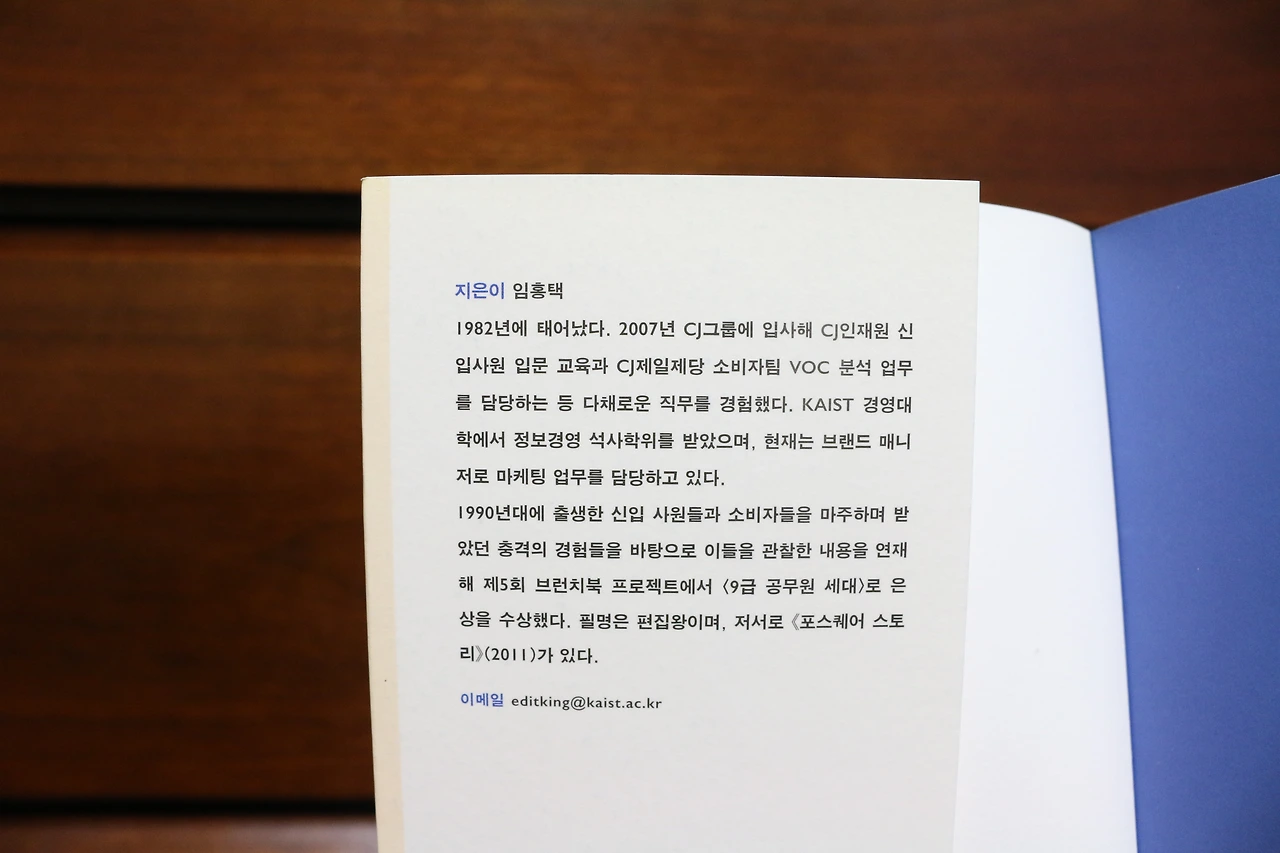 지은이 임홍택
1982년에 태어났다. 2007년 CJ그룹에 입사해 CJ인재원 신
입사원 입문 교육과 CJ제일제당 소비자팀 VOC 분석 업무
를 담당하는 등 다채로운 직무를 경험했다. KAIST 경영대
학에서 정보경영 석사학위를 받았으며, 현재는 브랜드 매니
저로 마케팅 업무를 담당하고 있다.
1990년대에 출생한 신입 사원들과 소비자들을 마주하며 받
았던 충격의 경험들을 바탕으로 이들을 관찰한 내용을 연재
해 제5회 브런치북 프로젝트에서 〈9급 공무원 세대〉로 은
상을 수상했다. 필명은 편집왕이며, 저서로 《포스퀘어 스토
리》(2011)가 있다.
이메일 editking@kaist.ac.kr